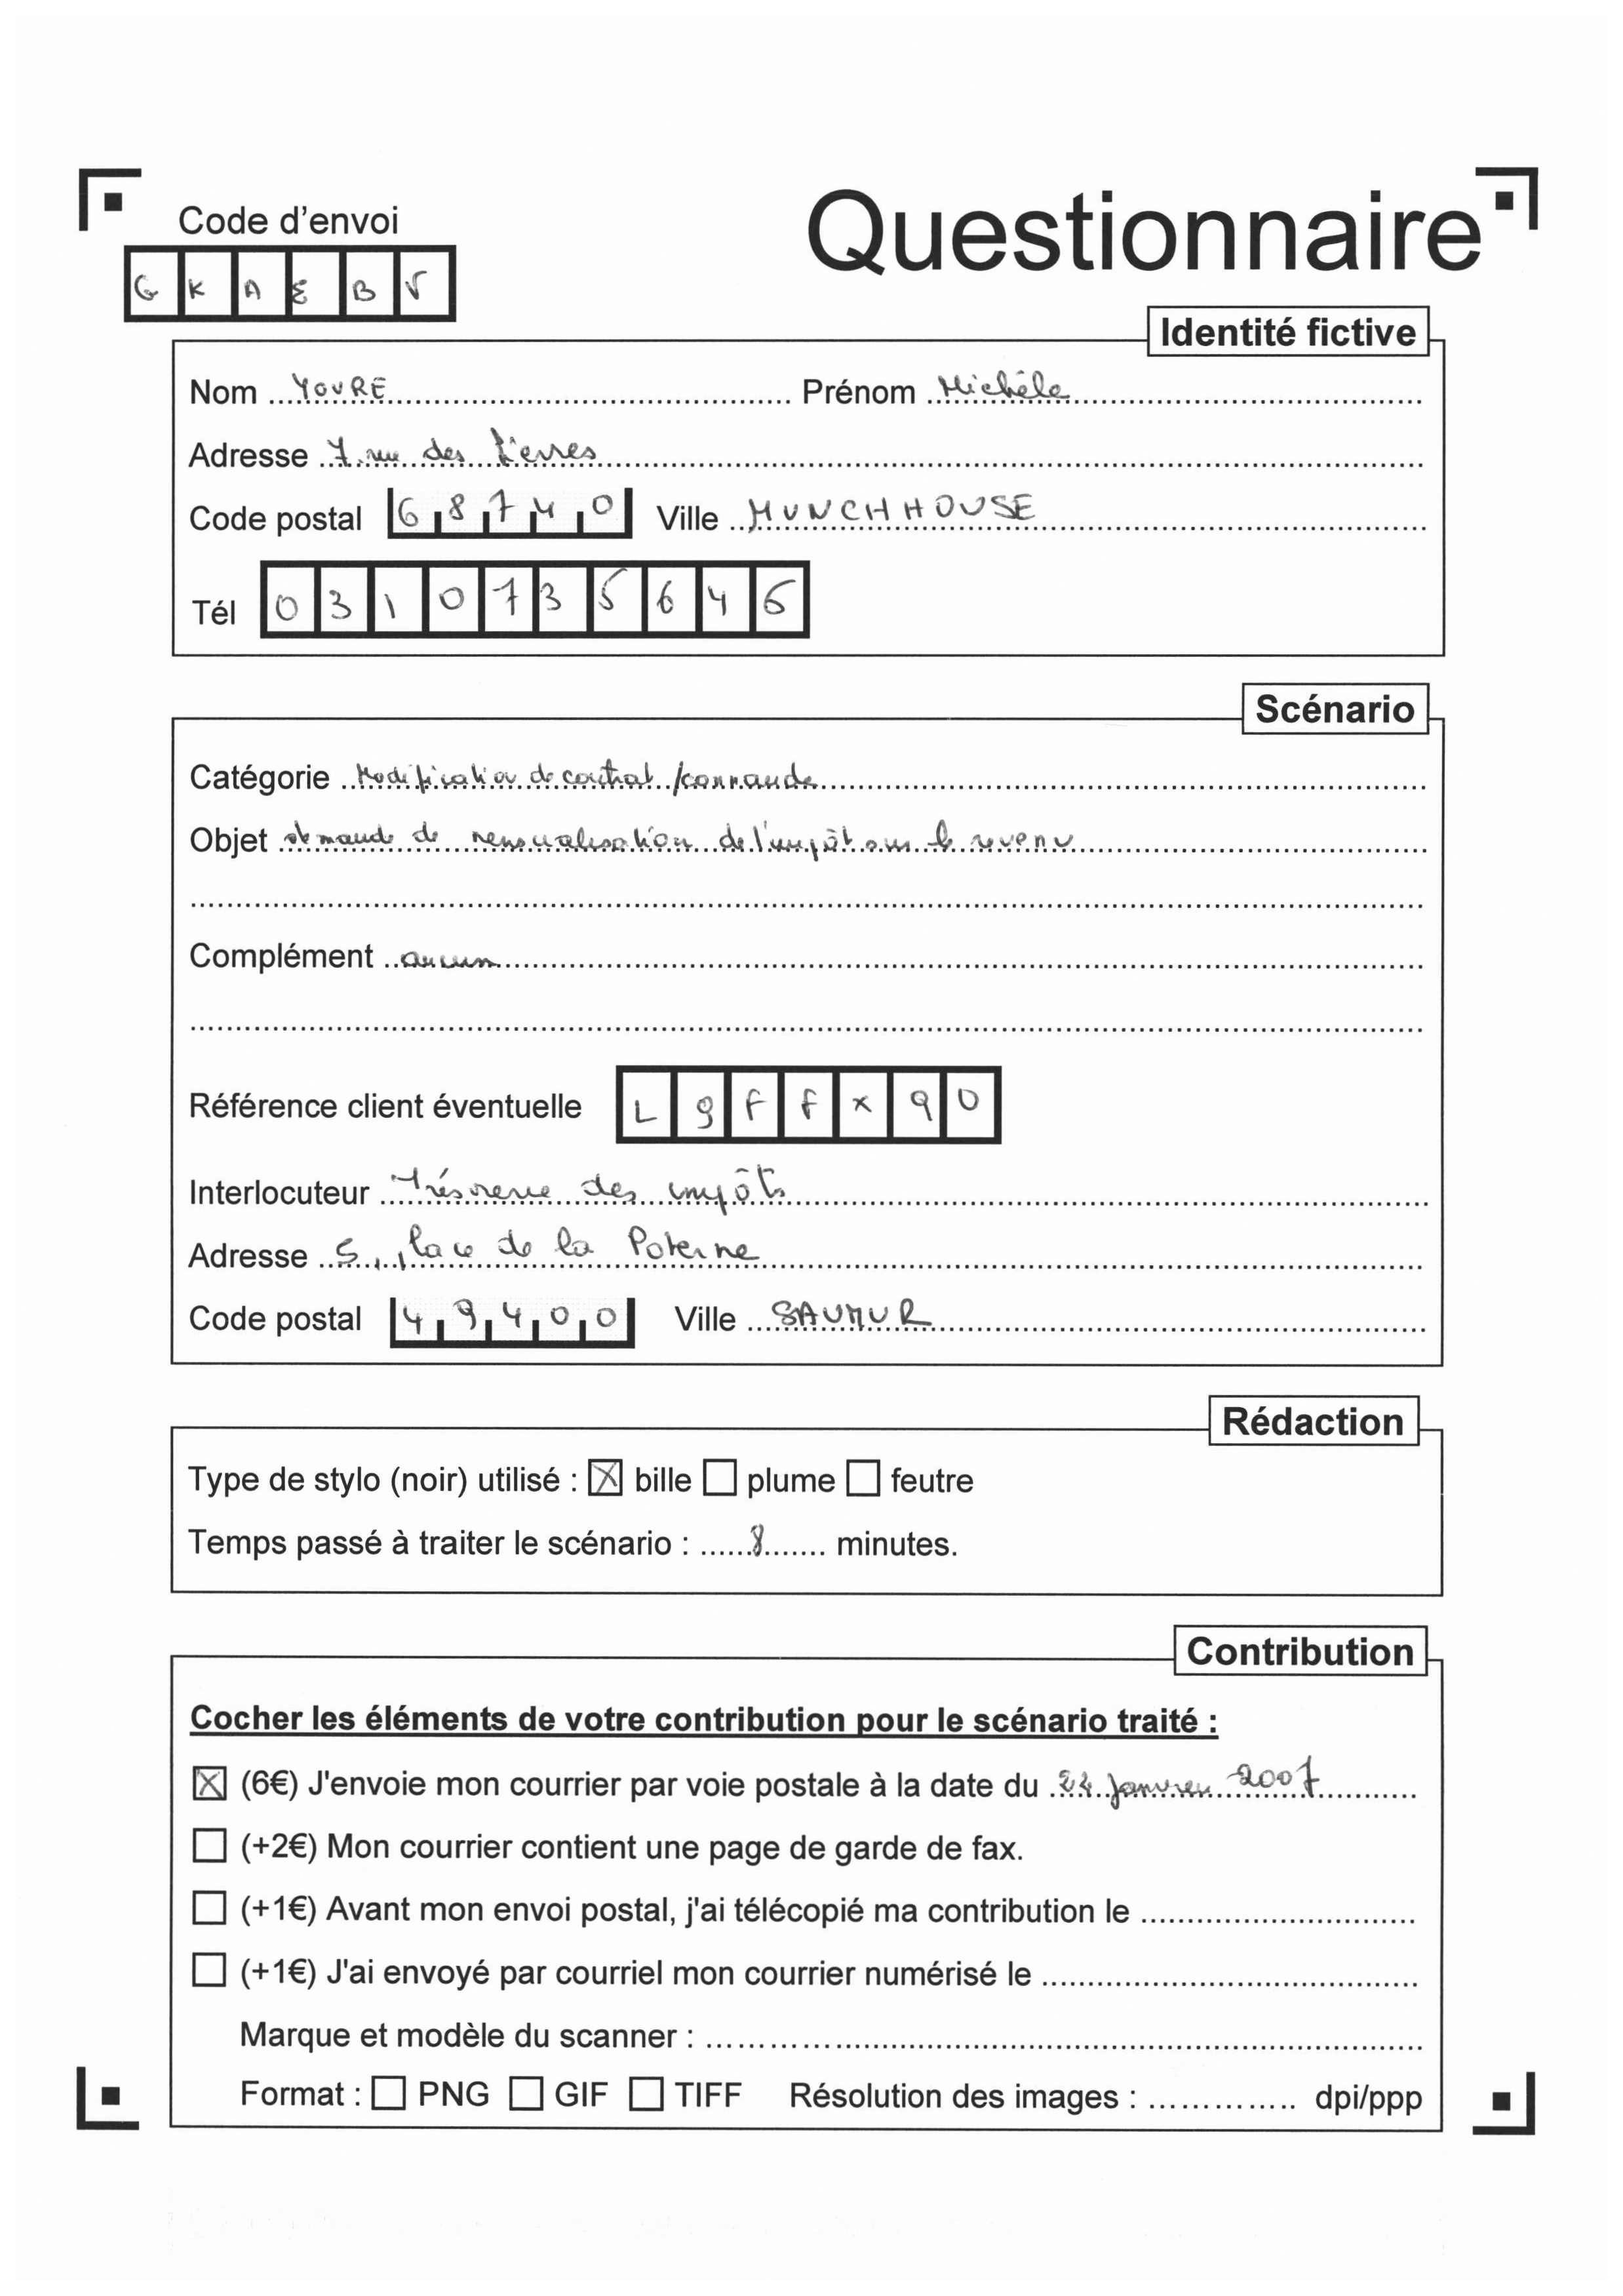 Code d'envoi
Questionnaire
G K A E B V
Identité fictive
Nom YOURE Prénom Michèle
Adresse 7 rue des Pierres
Code postal 68740 Ville MUNCHHOUSE
Tél 0310735646
Scénario
Catégorie Modification de contrat /commande
Objet demande de mensualisation de l'impôt sur le revenu
Complément aucun
Référence client éventuelle L 9 F F X 9 0
Interlocuteur Trésorerie des impôts
Adresse 5, place de la Poterne
Code postal 49400 Ville SAUMUR
Rédaction
Type de stylo (noir) utilisé : ☒ bille ☐ plume ☐ feutre
Temps passé à traiter le scénario : 8 minutes.
Contribution
Cocher les éléments de votre contribution pour le scénario traité :
☒ (6€) J'envoie mon courrier par voie postale à la date du Janvier 2007
☐ (+2€) Mon courrier contient une page de garde de fax.
☐ (+1€) Avant mon envoi postal, j'ai télécopié ma contribution le
☐ (+1€) J'ai envoyé par courriel mon courrier numérisé le
Marque et modèle du scanner :
Format : ☐ PNG ☐ GIF ☐ TIFF Résolution des images : dpi/ppp